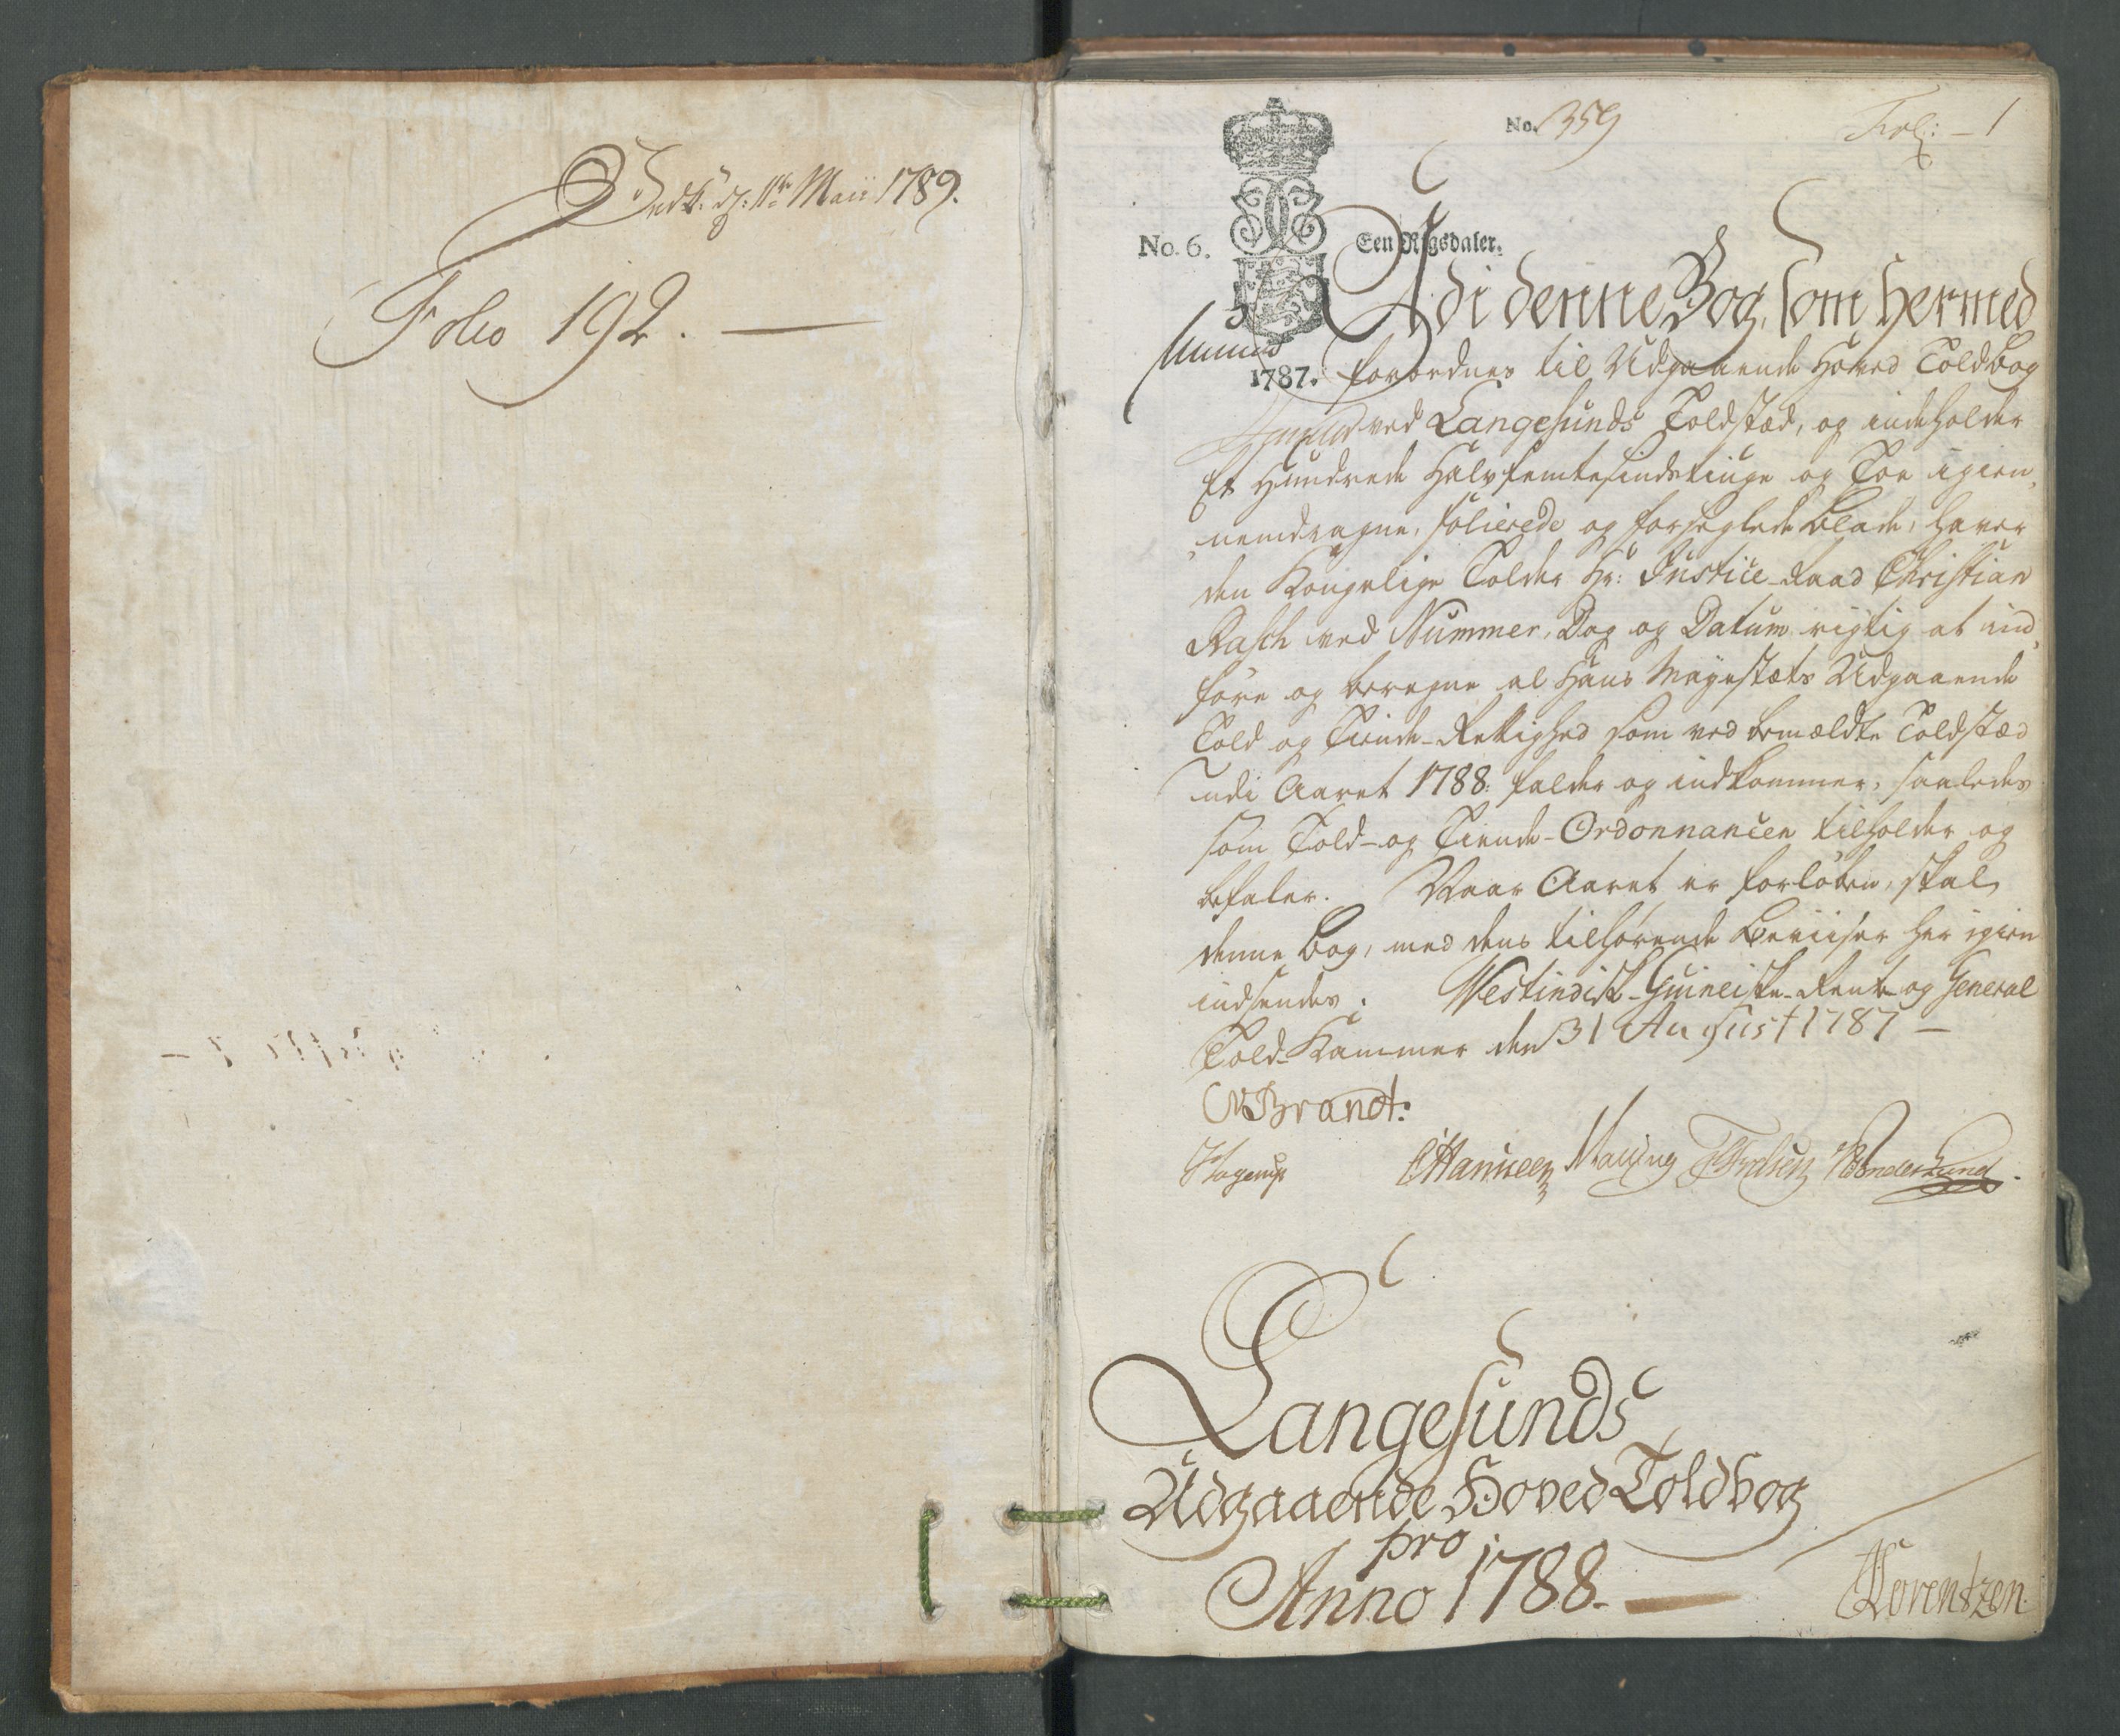 Indk: d: 11te Maii 1789.
Folio 192. —
No. 359
Fol: - 1
No. 6.
Een Rigsdaler.
1787.
Udi denne Bog, som hermed
forordnes til Udgaaende Hoved Toldbog
ved Langesunds Toldstæd, og indeholder
Et Hundrede Halvfemtesindstiuge og Toe igien,
nemdragne, folierede og forseglede Blade, haver
den Kongelige Tolder Hr: Justice-Raad Christian
Rasch ved Nummer, Dag og Datum rigtig at ind,
føre og beregne al Hans Mayestæts Udgaaende
Told og Tiende-Rettighed som ved bemældte Toldstæd
udi Aaret 1788: falder og indkommer, saaledes
som Told- og Tiende-Ordonnancen tilholder og
befaler. Naar Aaret er forløben, skal
denne Bog, med dens tilhørende Beviiser her igien
indsendes. Westindisk-Guineiske-Rente og General
Told-Kammer den 31 August 1787 —
CBrandt:
Hagerup
Langesunds
Udgaaende Hoved Toldbog
pro
Anno 1788. —
Lorentzen